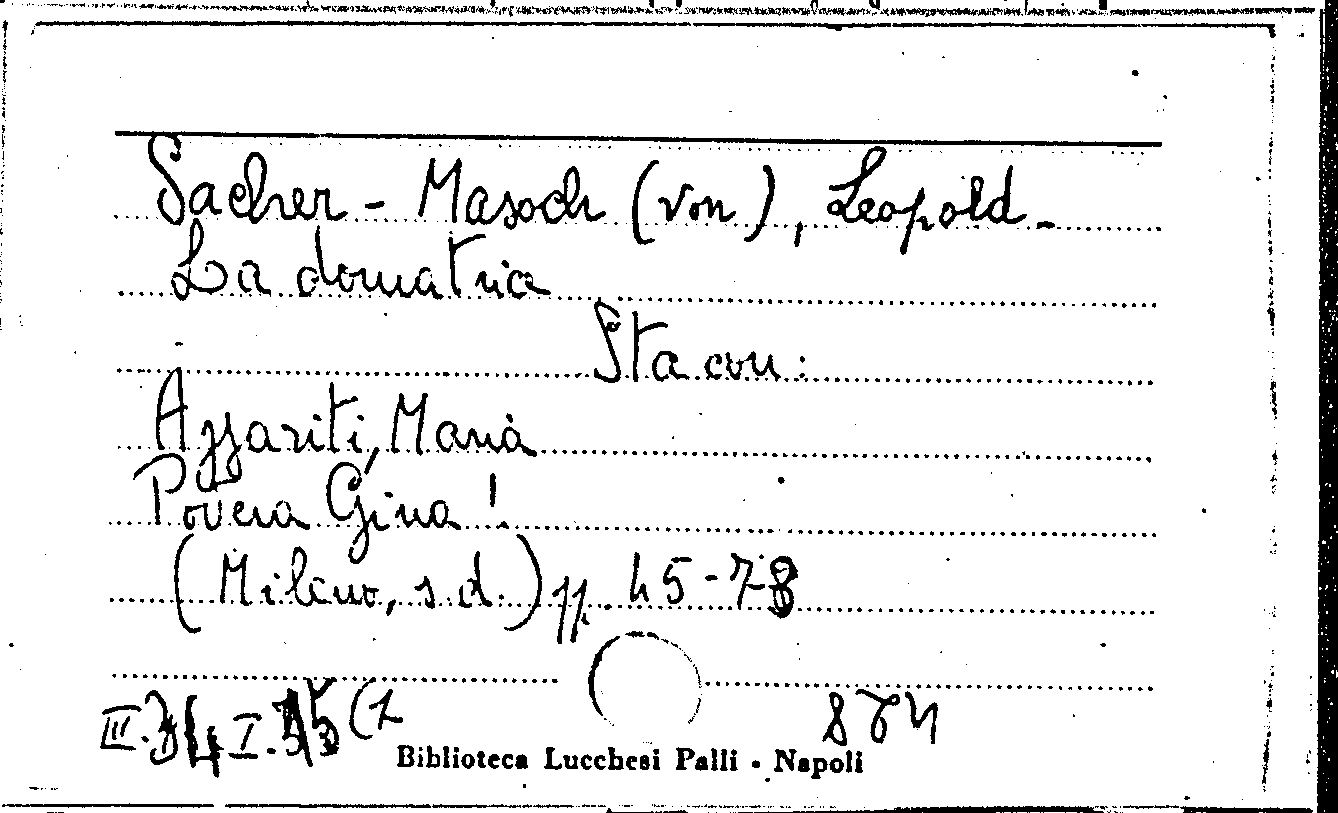 Sacher-Masoch (von), Leopold-
La domatrice
Sta con:
Azzariti, Maria
Povera Gina!
(Milano, s.d.) pp. 45-78
Biblioteca Lucchesi Palli - Napoli